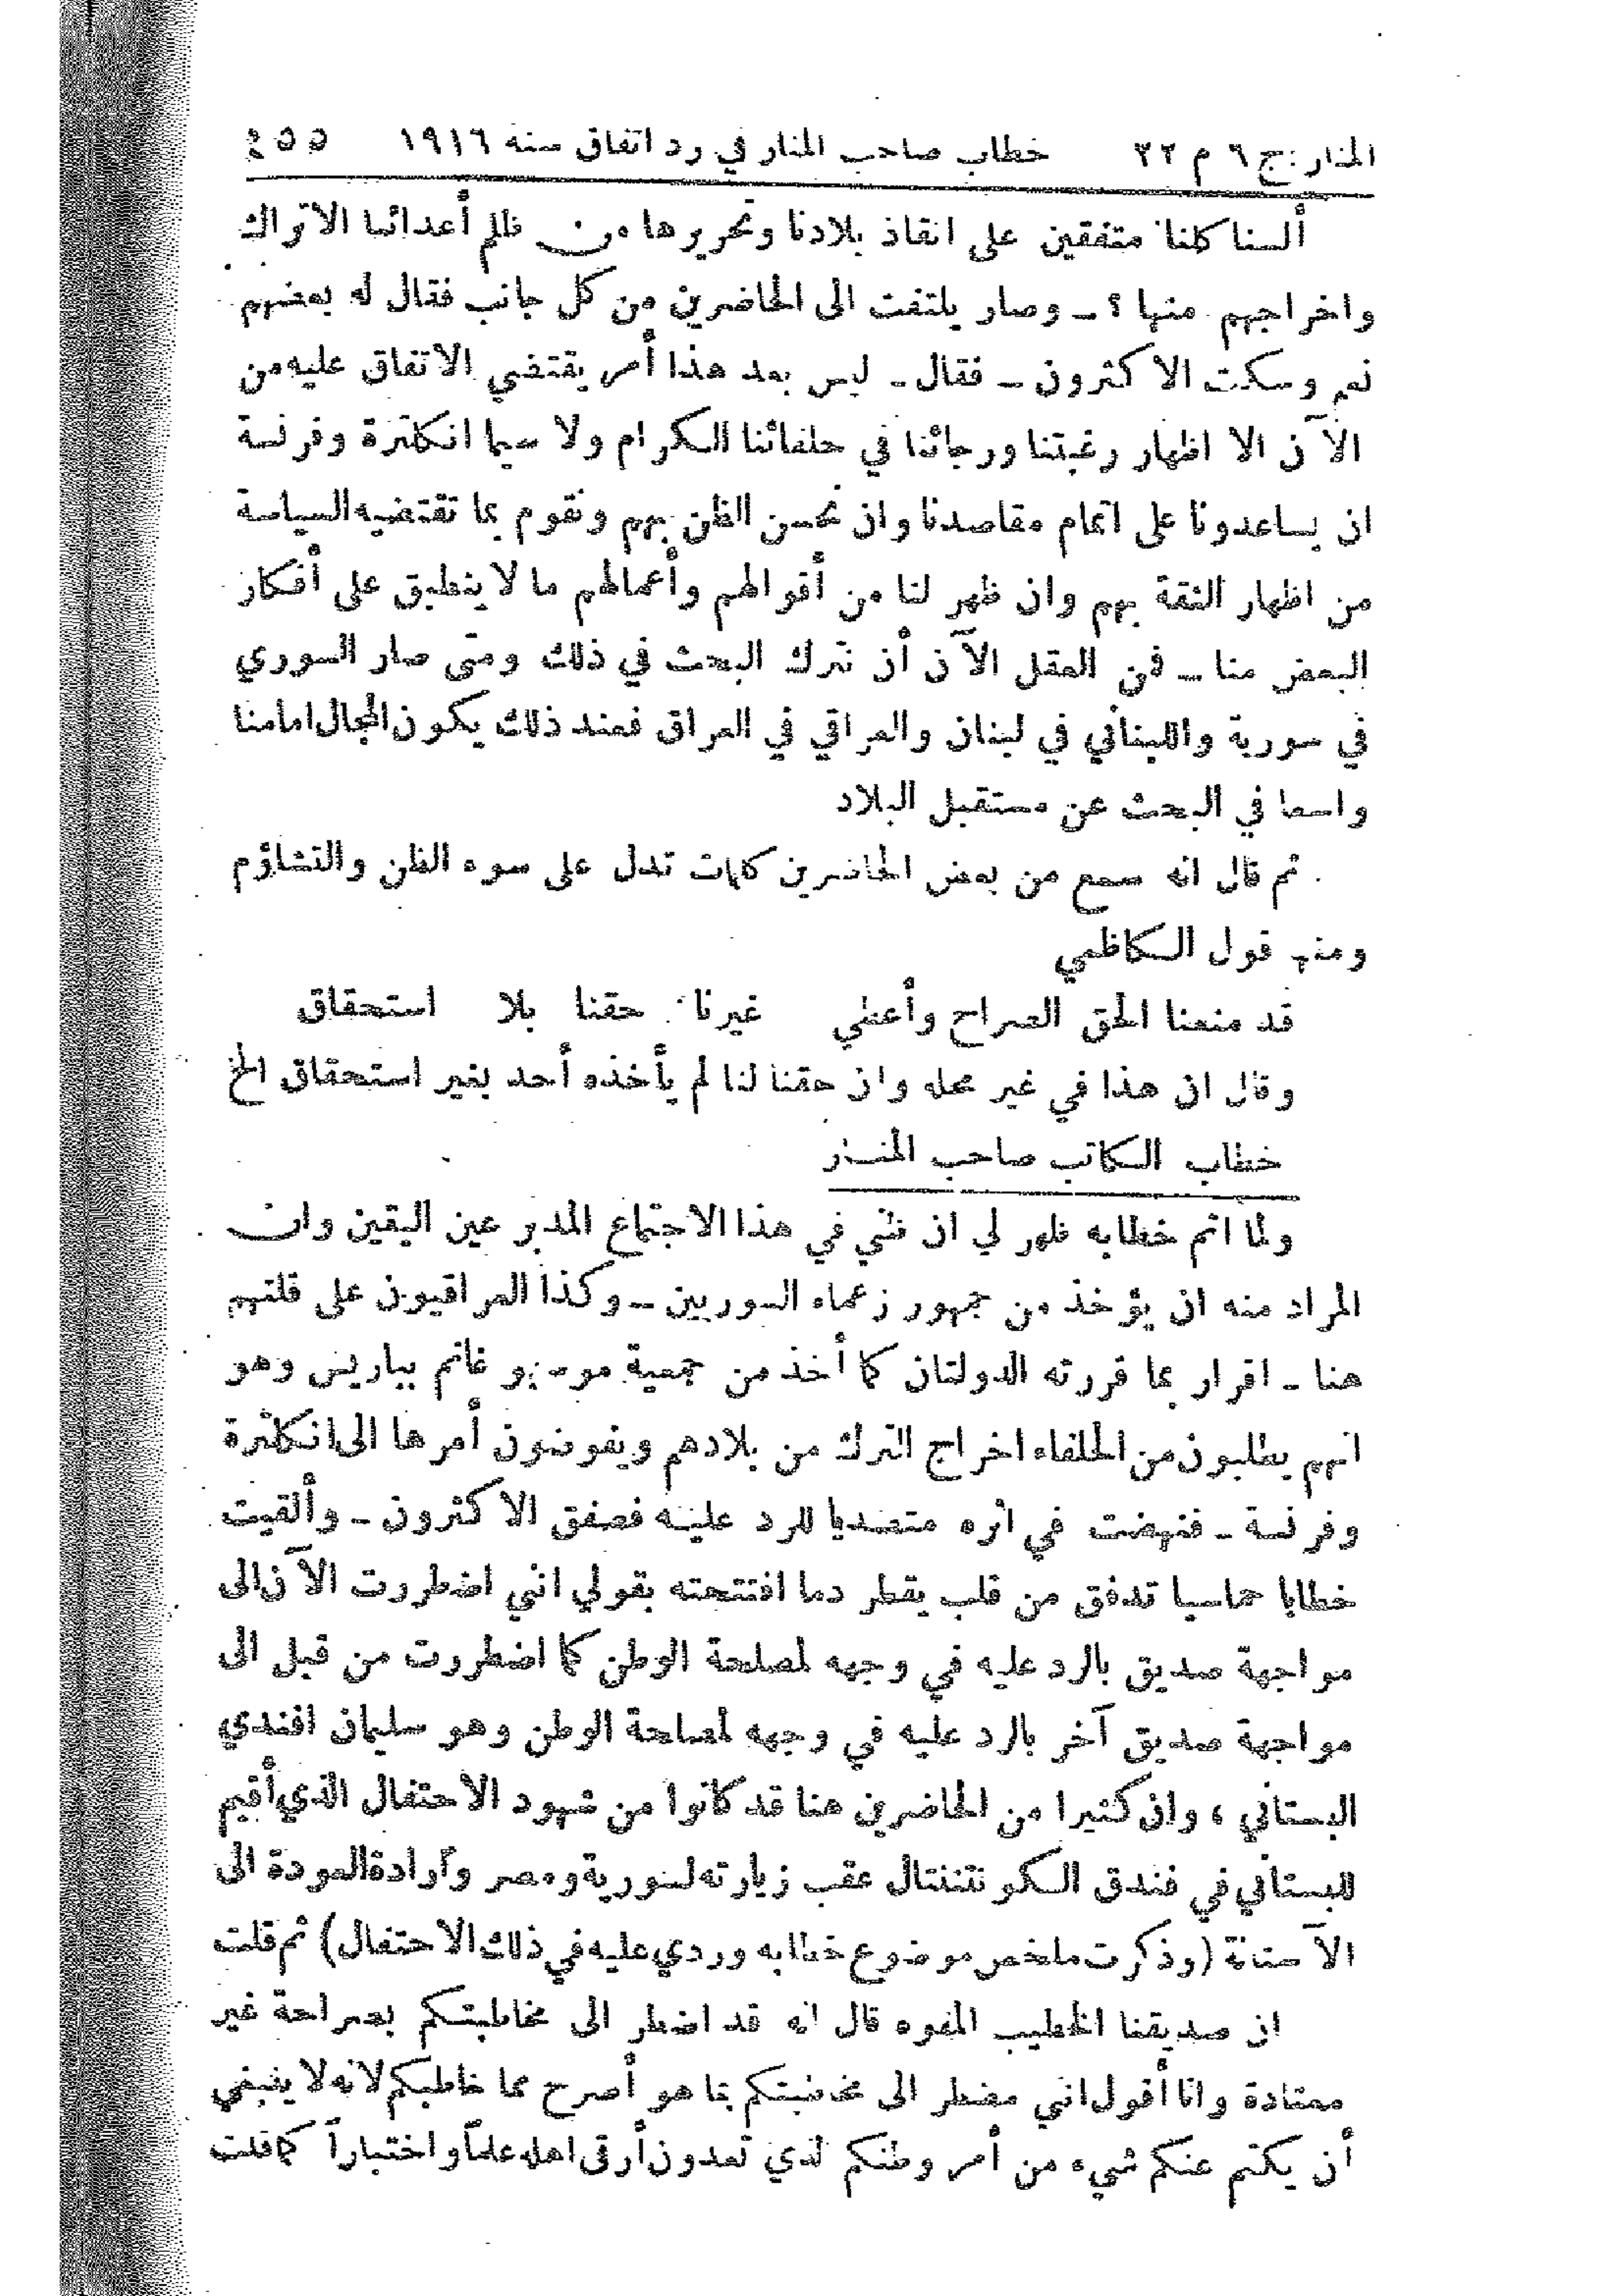 المنار: ج ٦ م ٢٢ خطاب صاحب المنار في رد اتفاق سنة ١٩١٦ ٤٥٥
ألسنا كلنا متفقين على انقاذ بلادنا وتحريرها من ظلم أعدائنا الاتراك
واخراجهم منها ؟ ـ وصار يلتفت الى الحاضرين من كل جانب فقال له بعضهم
نعم وسكت الاكثرون ـ فقال ـ ليس بعد هذا أمر يقتضي الاتفاق عليه من
الآن الا اظهار رغبتنا ورجائنا في حلفائنا الكرام ولا سيما انكلترة وفرنسة
ان يساعدونا على اتمام مقاصدنا وان نحسن الظن بهم ونقوم بما تقتضيه السياسة
من اظهار الثقة بهم وان ظهر لنا من أقوالهم وأعمالهم ما لا ينطبق على أفكار
البعض منا ـ فمن العقل الآن أن نترك البحث في ذلك ومتى صار السوري
في سورية واللبناني في لبنان والعراقي في العراق فعند ذلك يكون المجال امامنا
واسعا في البحث عن مستقبل البلاد
ثم قال انه سمع من بعض الحاضرين كلمات تدل على سوء الظن والتشاؤم
ومنها قول الكاظمي
قد منعنا الحق الصراح وأعطي غيرنا حقنا بلا استحقاق
وقال ان هذا في غير محله وان حقنا لنا لم يأخذه أحد بغير استحقاق الخ
خطاب الكاتب صاحب المنار
ولما اتم خطابه ظهر لي ان ظني في هذا الاجتماع المدبر عين اليقين وان
المراد منه ان يؤخذ من جمهور زعماء السوريين ـ وكذا العراقيون على قلتهم
هنا ـ اقرار بما قررته الدولتان كما أخذ من جمعية موسيو غانم بباريس وهو
انهم يطلبون من الحلفاء اخراج الترك من بلادهم ويفوضون أمرها الى انكلترة
وفرنسة ـ فنهضت في اثره متصديا للرد عليه فصفق الاكثرون ـ وألقيت
خطابا حماسيا تدفق من قلب يقطر دما افتتحته بقولي انني اضطررت الآن الى
مواجهة صديق بالرد عليه في وجهه لمصلحة الوطن كما اضطررت من قبل الى
مواجهة صديق آخر بالرد عليه في وجهه لمصلحة الوطن وهو سليمان افندي
البستاني ، وان كثيرا من الحاضرين هنا قد كانوا من شهود الاحتفال الذي أقيم
للبستاني في فندق الكونتننتال عقب زيارته لسورية ومصر وارادة العودة الى
الآستانة (وذكرت ملخص موضوع خطابه وردي عليه في ذلك الاحتفال) ثم قلت
ان صديقنا الخطيب المفوه قال انه قد اضطر الى مخاطبتكم بصراحة غير
معتادة وانا أقول انني مضطر الى مخاطبتكم بما هو أصرح مما خاطبكم لانه لا ينبغي
أن يكتم عنكم شيء من أمر وطنكم لذي تعدون أرقى اهله علماً واختباراً كما قلت